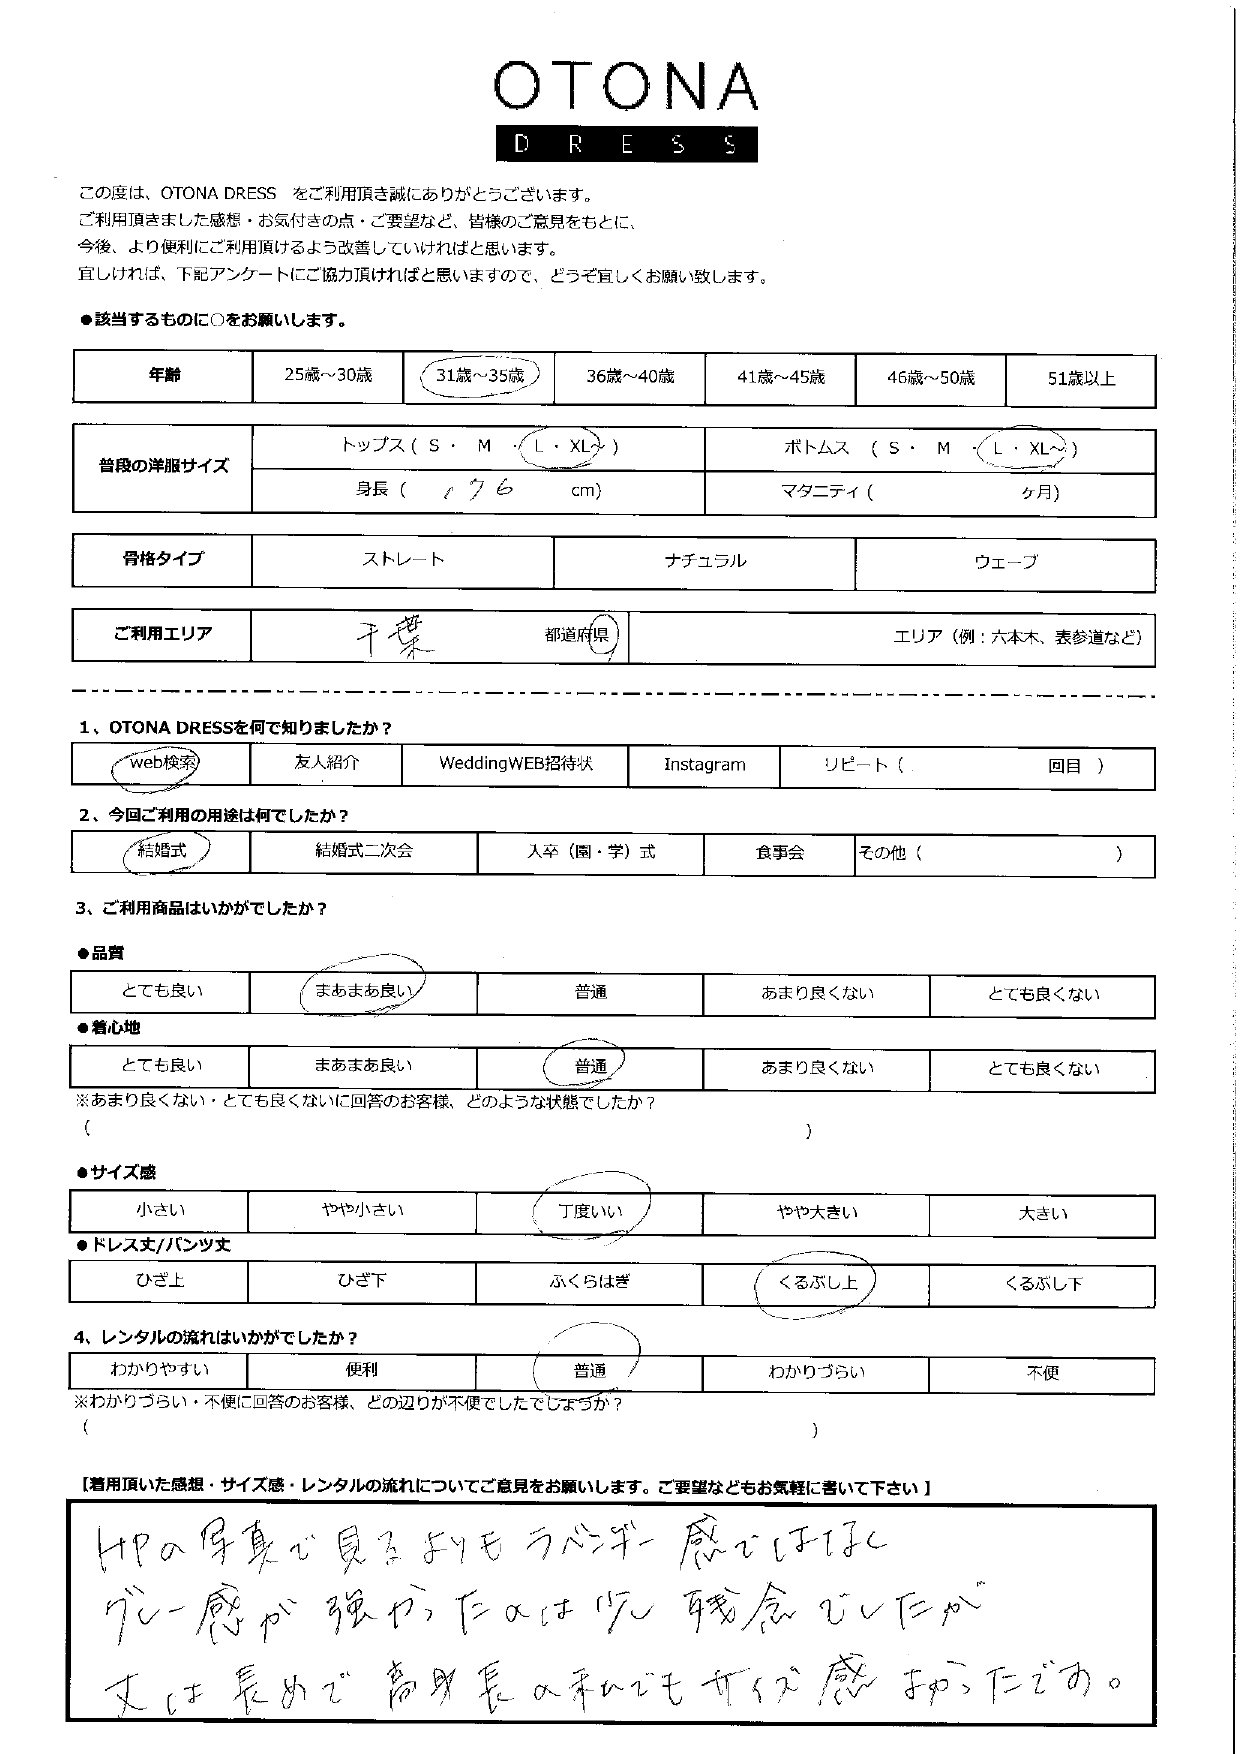 OTONA
DRESS
この度は、OTONA DRESS　をご利用頂き誠にありがとうございます。
ご利用頂きました感想・お気付きの点・ご要望など、皆様のご意見をもとに、
今後、より便利にご利用頂けるよう改善していければと思います。
宜しければ、下記アンケートにご協力頂ければと思いますので、どうぞ宜しくお願い致します。
●該当するものに○をお願いします。
年齢 25歳～30歳 31歳～35歳 36歳～40歳 41歳～45歳 46歳～50歳 51歳以上
普段の洋服サイズ トップス ( S ・ M ・ L ・ XL～ ) ボトムス ( S ・ M ・ L ・ XL～ )
身長 ( 176 cm) マタニティ ( ヶ月)
骨格タイプ ストレート ナチュラル ウェーブ
ご利用エリア 千葉 都道府県 エリア（例：六本木、表参道など）
1、OTONA DRESSを何で知りましたか？
web検索 友人紹介 WeddingWEB招待状 Instagram リピート（ 回目 ）
2、今回ご利用の用途は何でしたか？
結婚式 結婚式二次会 入卒（園・学）式 食事会 その他（ ）
3、ご利用商品はいかがでしたか？
●品質
とても良い まあまあ良い 普通 あまり良くない とても良くない
●着心地
とても良い まあまあ良い 普通 あまり良くない とても良くない
※あまり良くない・とても良くないに回答のお客様、どのような状態でしたか？
( )
●サイズ感
小さい やや小さい 丁度いい やや大きい 大きい
●ドレス丈/パンツ丈
ひざ上 ひざ下 ふくらはぎ くるぶし上 くるぶし下
4、レンタルの流れはいかがでしたか？
わかりやすい 便利 普通 わかりづらい 不便
※わかりづらい・不便に回答のお客様、どの辺りが不便でしたでしょうか？
( )
【着用頂いた感想・サイズ感・レンタルの流れについてご意見をお願いします。ご要望などもお気軽に書いて下さい】
HPの写真で見るよりもラベンダー感ではなく
グレー感が強かったのは少し残念でしたが
丈は長めで高身長の私でもサイズ感よかったです。